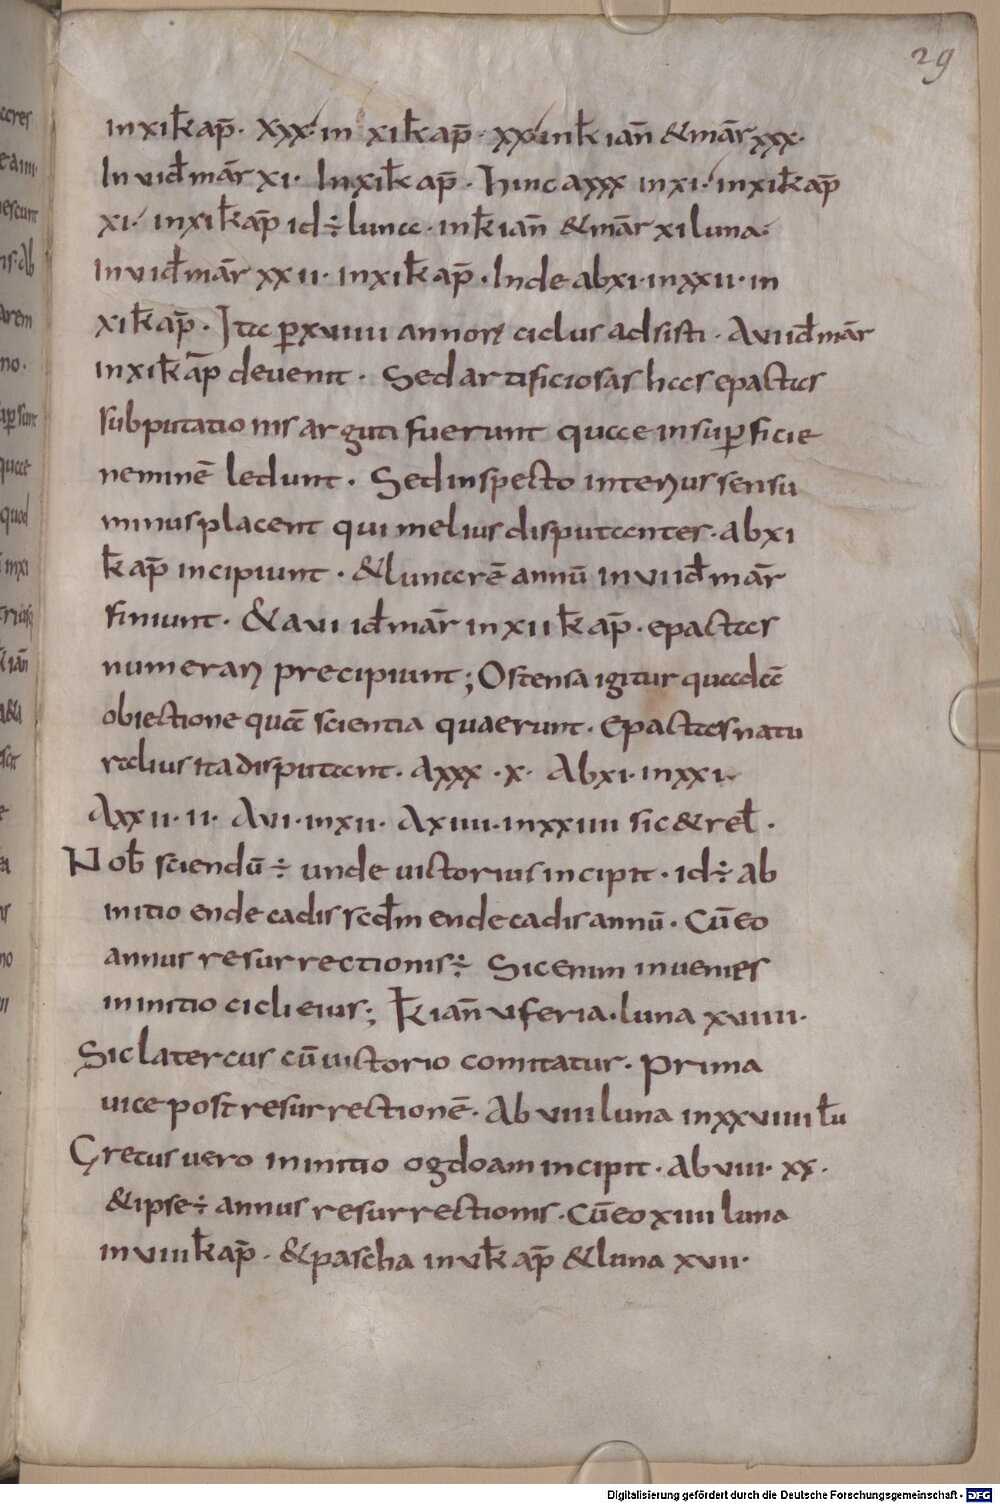 29
in xi k̄ ap̄. xxx. in xi k̄ ap̄. xx. in k̄ ian̄ & mar̄ xxx.
In vi id̄ mar̄ xi. In xi k̄ ap̄. hinc a xxx in xi. in xi k̄ ap̄
xi. in xi k̄ ap̄ id ÷ luna. in k̄ ian̄ & mar̄ xi luna.
In vi id̄ mar̄ xxii. in xi k̄ ap̄. Inde ab xi. in xxii. in
xi k̄ ap̄. Ita ꝑ xviiii annoꝝ ciclus adsisti. A vi id̄ mar̄
in xi k̄ ap̄ devenit. Sed artificiosas has epactas
subputationis arguti fuerunt quae in suꝑficie
neminē ledunt. Sed inspecto interius sensu
minus placent qui melius disputantes. ab xi
k̄ ap̄ incipiunt. & lunarē annū in vii id̄ mar̄
finiunt. & a vi id̄ mar̄ in xii k̄ ap̄. epactas
numerari precipiunt; Ostensa igitur quadā
obiectione quā scientia quaerunt. Epactas natu
ralius ita disputant. A xxx. x. Ab xi. in xxi.
A xxii. ii. A vi. in xii. A xiiii. in xxiiii sic & rel̄.
Nob̄ sciendū ÷ unde victorius incipit. id ÷ ab
initio endecadis scd̄m endecadis annū. Cū eo
annus resurrectionis ÷. Sic enim invenies
in initio cicli eius; k̄ ian̄ v feria. luna xviiii.
Sic latercus cū victorio comitatur. Prima
vice post resurrectionē. Ab viii luna in xxviiii lu̅
Gretus vero in initio ogdoam incipit. ab viii. xx.
& ipse ÷ annus resurrectionis. Cū eo xiiii luna
in viiii k̄ ap̄. & pascha in v k̄ ap̄ & luna xvii.
Digitalisierung gefördert durch die Deutsche Forschungsgemeinschaft - DFG